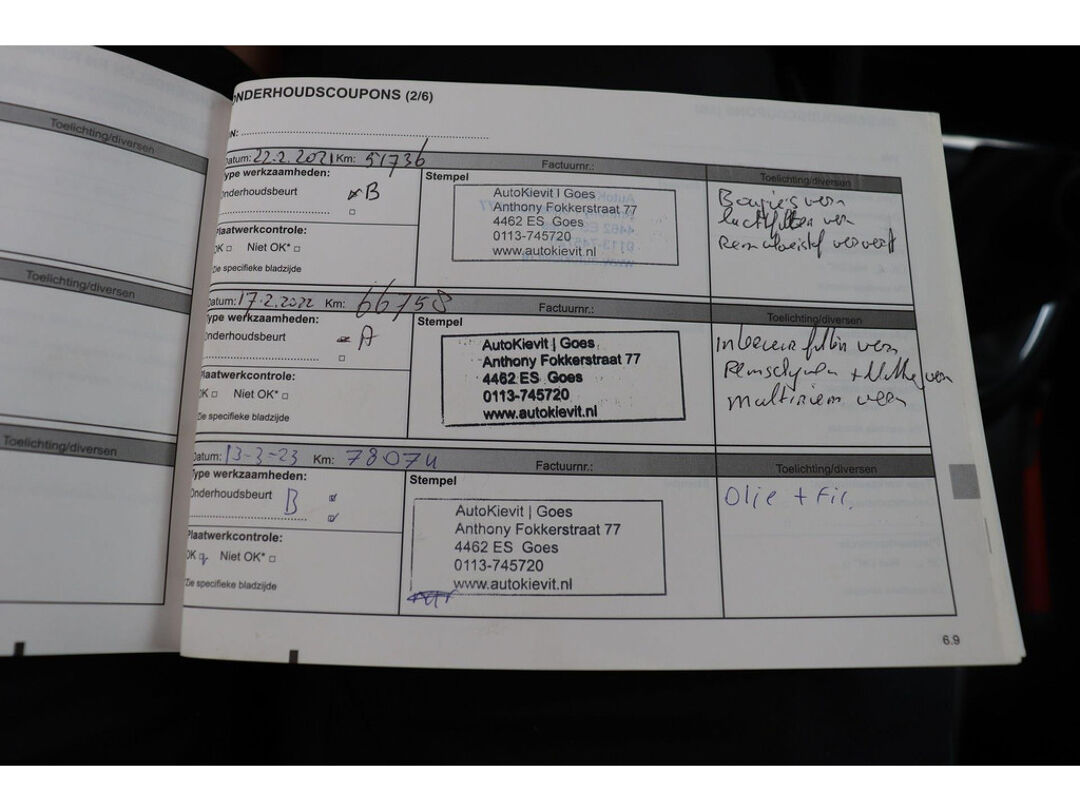 Toelichting/diversen
Toelichting/diversen
Toelichting/diversen
ONDERHOUDSCOUPONS (2/6)
Datum: 22.2.2021 Km: 51736 Factuurnr.: Toelichting/diversen
Type werkzaamheden:
Onderhoudsbeurt B
Plaatwerkcontrole:
OK □ Niet OK* □
Zie specifieke bladzijde
Stempel
AutoKievit | Goes
Anthony Fokkerstraat 77
4462 ES Goes
0113-745720
www.autokievit.nl
Bougies vern
luchtfilter ver
Remvloeistof ververst
Datum: 17.2.2022 Km: 66758 Factuurnr.: Toelichting/diversen
Type werkzaamheden:
Onderhoudsbeurt A
Plaatwerkcontrole:
OK □ Niet OK* □
Zie specifieke bladzijde
Stempel
AutoKievit | Goes
Anthony Fokkerstraat 77
4462 ES Goes
0113-745720
www.autokievit.nl
vern
Remschijven + vern
multiriem
Datum: 13-3-23 Km: 78074 Factuurnr.: Toelichting/diversen
Type werkzaamheden:
Onderhoudsbeurt B
Plaatwerkcontrole:
OK Niet OK* □
Zie specifieke bladzijde
Stempel
AutoKievit | Goes
Anthony Fokkerstraat 77
4462 ES Goes
0113-745720
www.autokievit.nl
Olie + Fil.
6.9